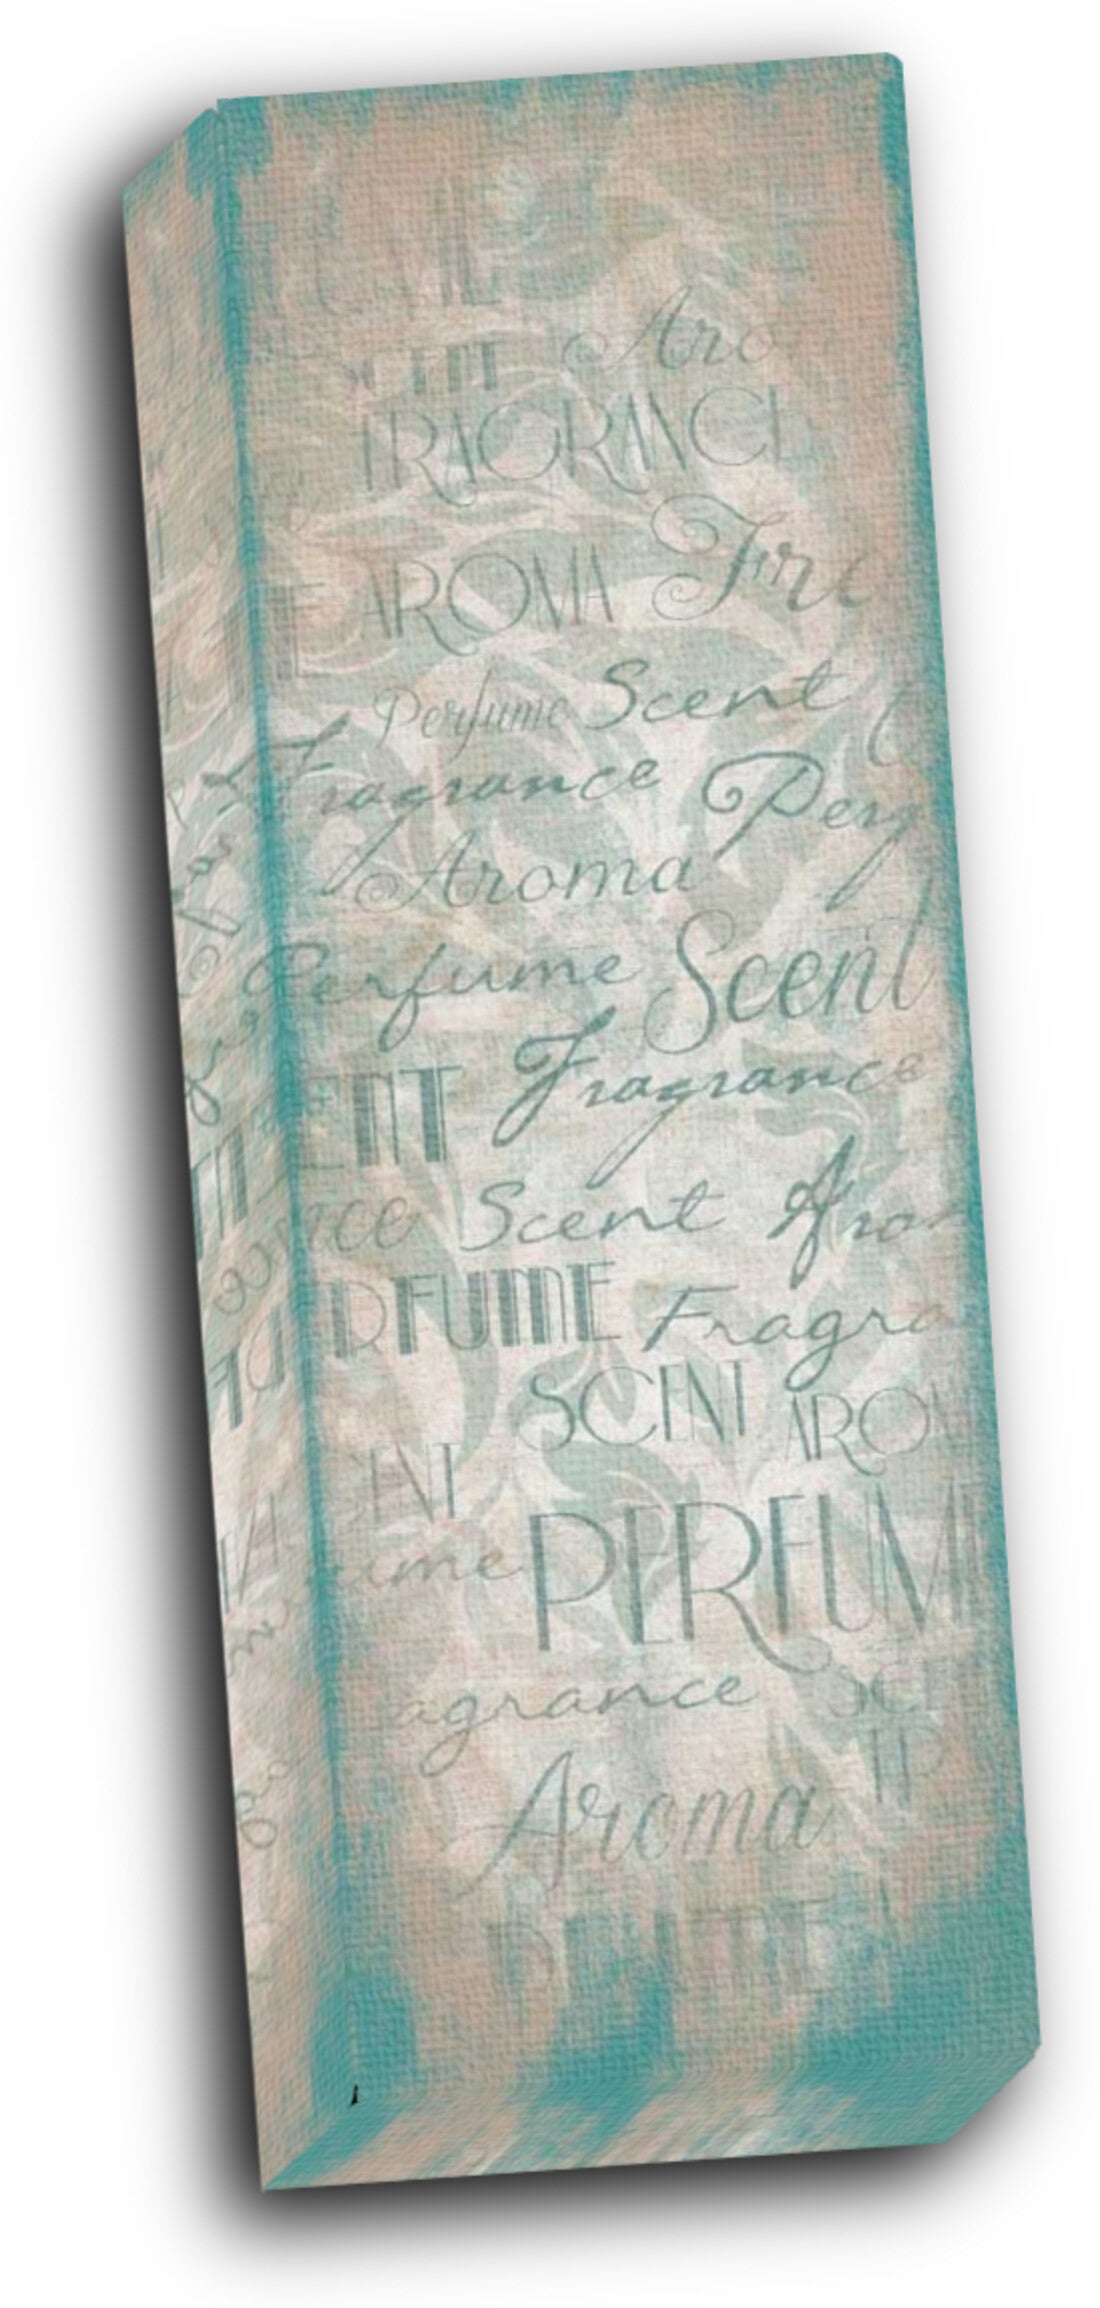 Aro
FRAGRANCE
AROMA Fra
Perfume Scent
Fragrance Perf
Aroma
Perfume Scent
ENT Fragrance
Scent Arom
RFUME Fragra
SCENT AROM
ENT
ume PERFUME
agrance SCE
Aroma